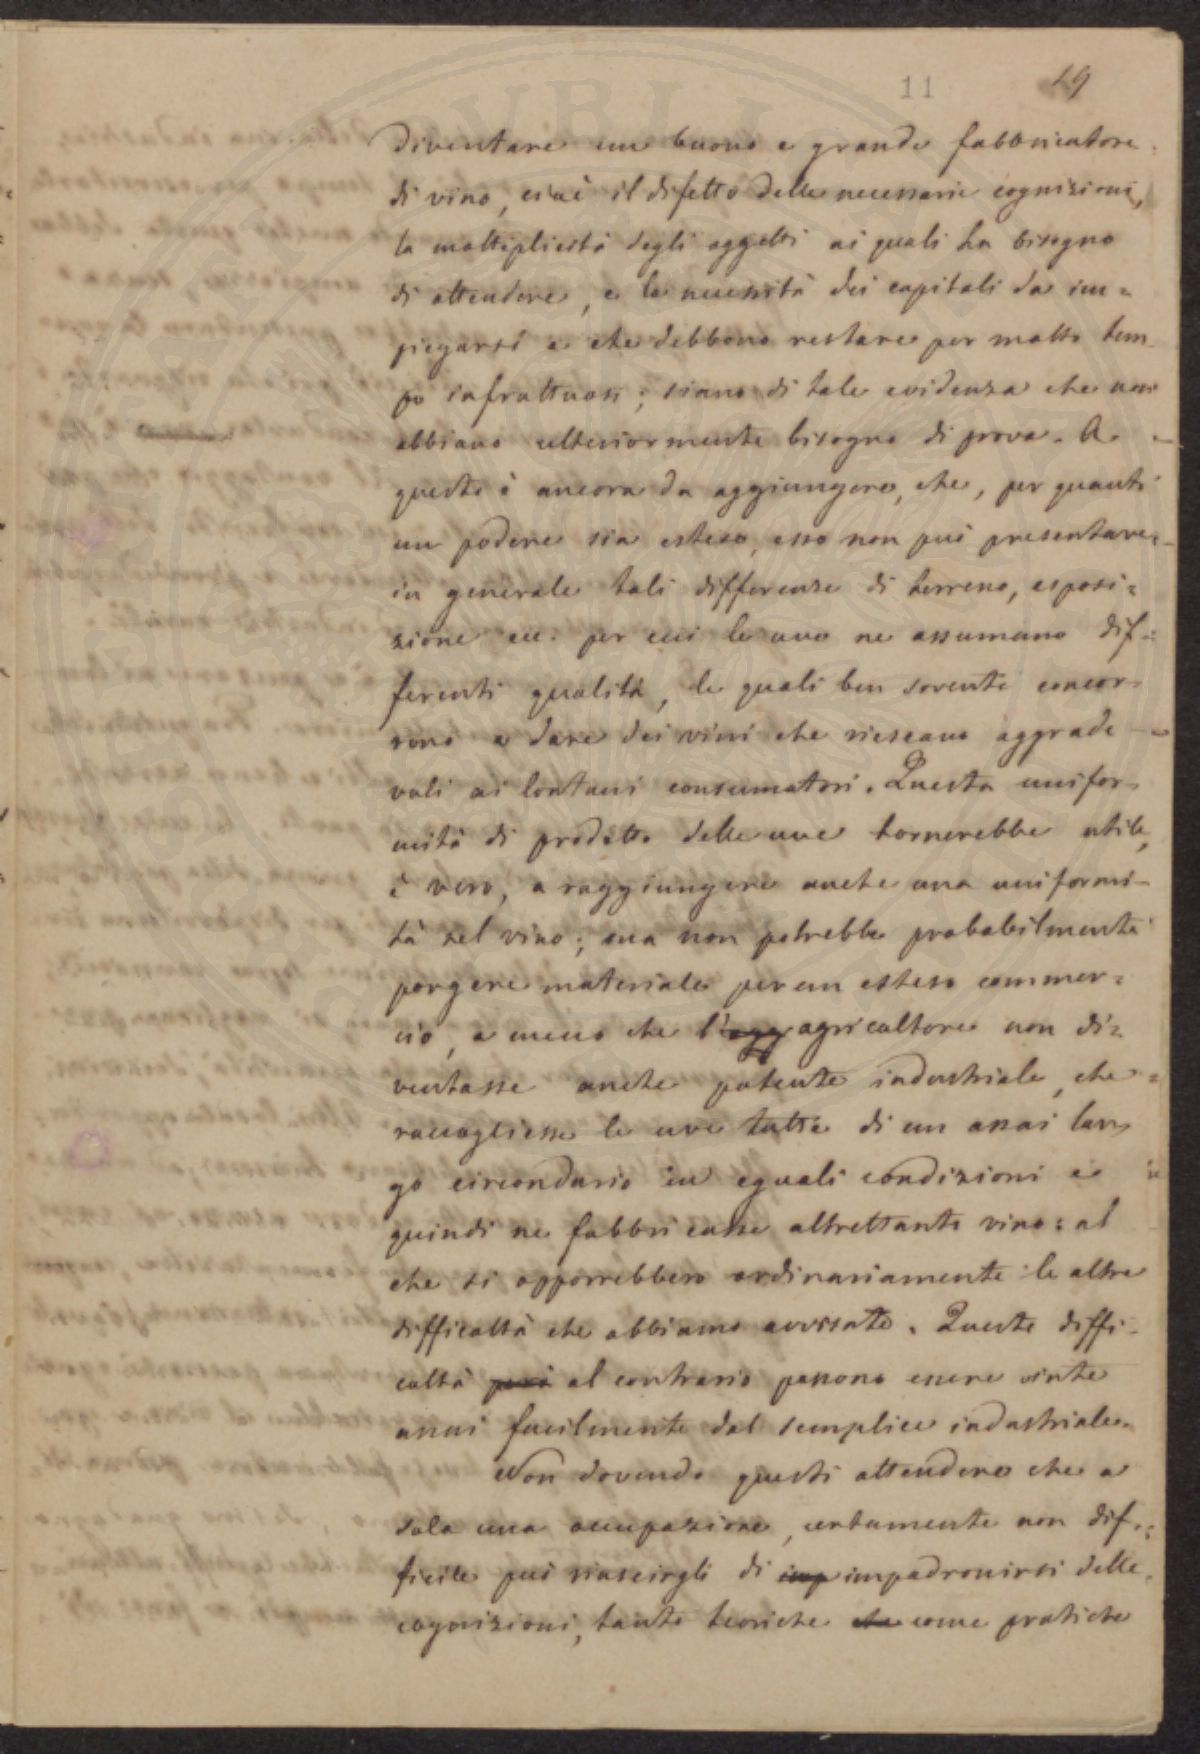 11 19
diventare un buono e grande fabbricatore
di vino, cioè il difetto delle necessarie cognizioni,
la molteplicità degli oggetti ai quali ha bisogno
di attendere, e la necessità dei capitali da im=
piegarsi e che debbono restare per molto tem
po infruttuosi; siano di tale evidenza che non
abbiano ulteriormente bisogno di prova. A
questo è ancora da aggiungere, che, per quanto
un podere sia esteso, esso non può presentare
in generale tali differenze di terreno, esposi=
zione ecc. per cui le uve ne assumano dif=
ferenti qualità, le quali ben sovente concor=
rono a dare dei vini che riescano aggrade
voli ai lontani consumatori. Questa unifor
mità di prodotto delle uve tornerebbe utile,
è vero, a raggiungere anche una uniformi=
tà nel vino; ma non potrebbe probabilmente
porgere materiale per un esteso commer=
cio, a meno che l'agg agricoltore non di=
ventasse anche potente industriale, che
raccogliesse le uve tutte di un assai lar
go circondario in eguali condizioni e
quindi ne fabbricasse altrettanto vino: al
che si opporrebbero ordinariamente le altre
difficoltà che abbiamo avvisate. Queste diffi=
coltà però al contrario possono essere vinte
assai facilmente dal semplice industriale.
Non dovendo questi attendere che a
sola una occupazione, certamente non dif=
ficile può riuscirgli di imp impadronirsi delle
cognizioni, tanto teoriche che come pratiche